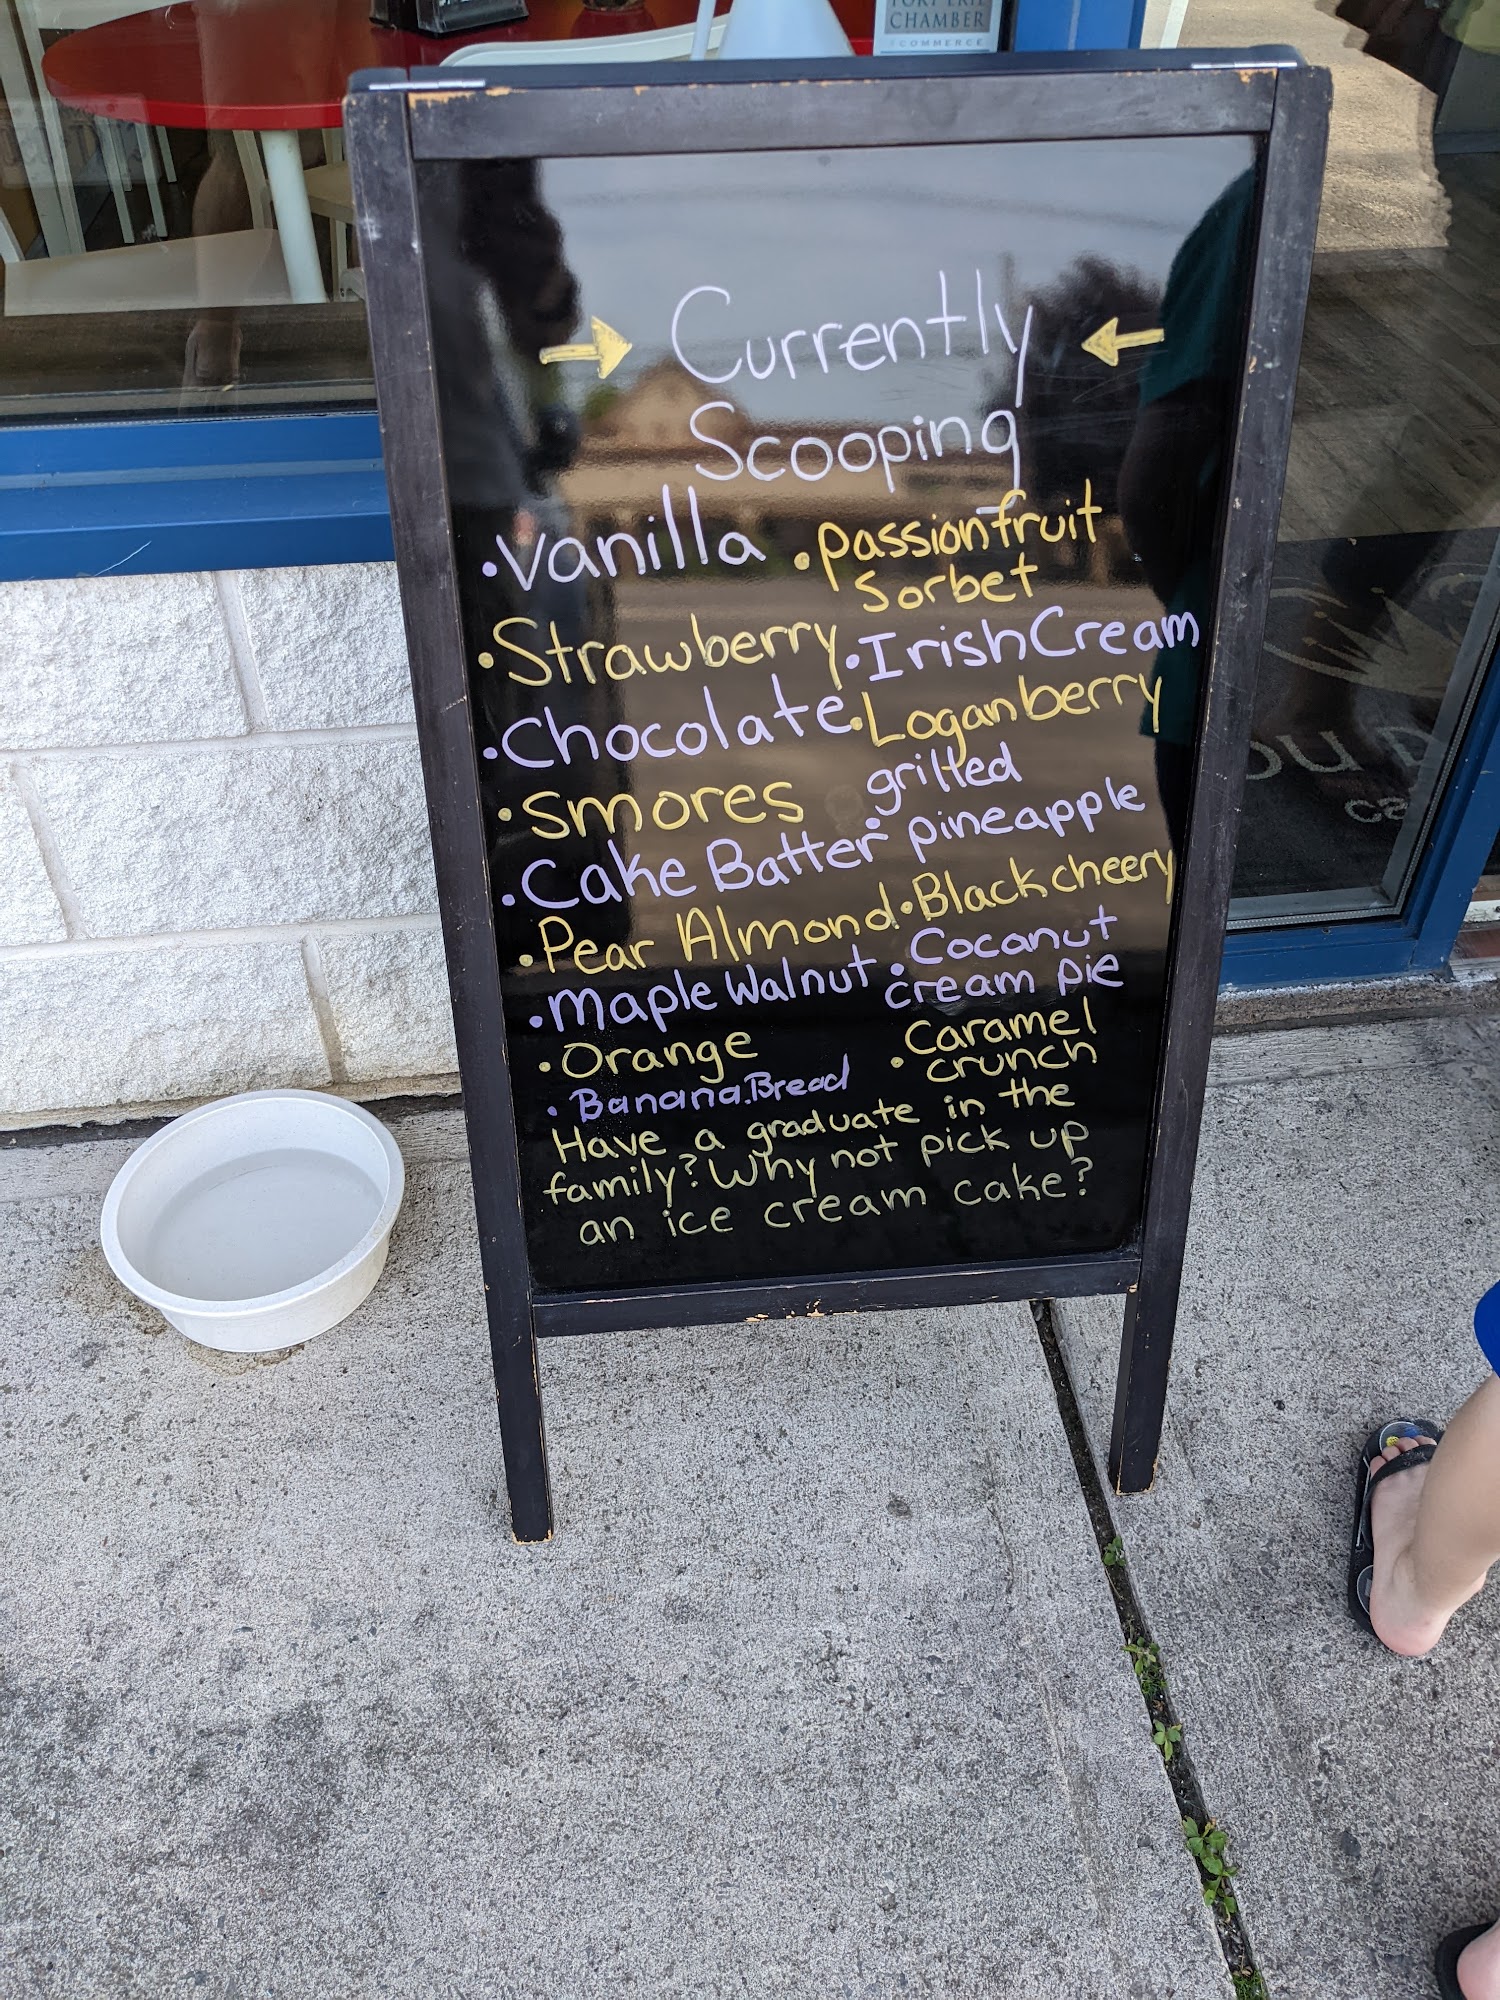 FORT ERIE
CHAMBER
OF COMMERCE
Currently
Scooping
• Vanilla
• Strawberry
• Chocolate
• Smores
• Cake Batter
• Pear Almond
• Maple Walnut
• Orange
• Banana.Bread
• passionfruit
sorbet
• Irish Cream
• Loganberry
• grilled
pineapple
• Black cheery
• Cocanut
cream pie
• Caramel
crunch
Have a graduate in the
family? Why not pick up
an ice cream cake?